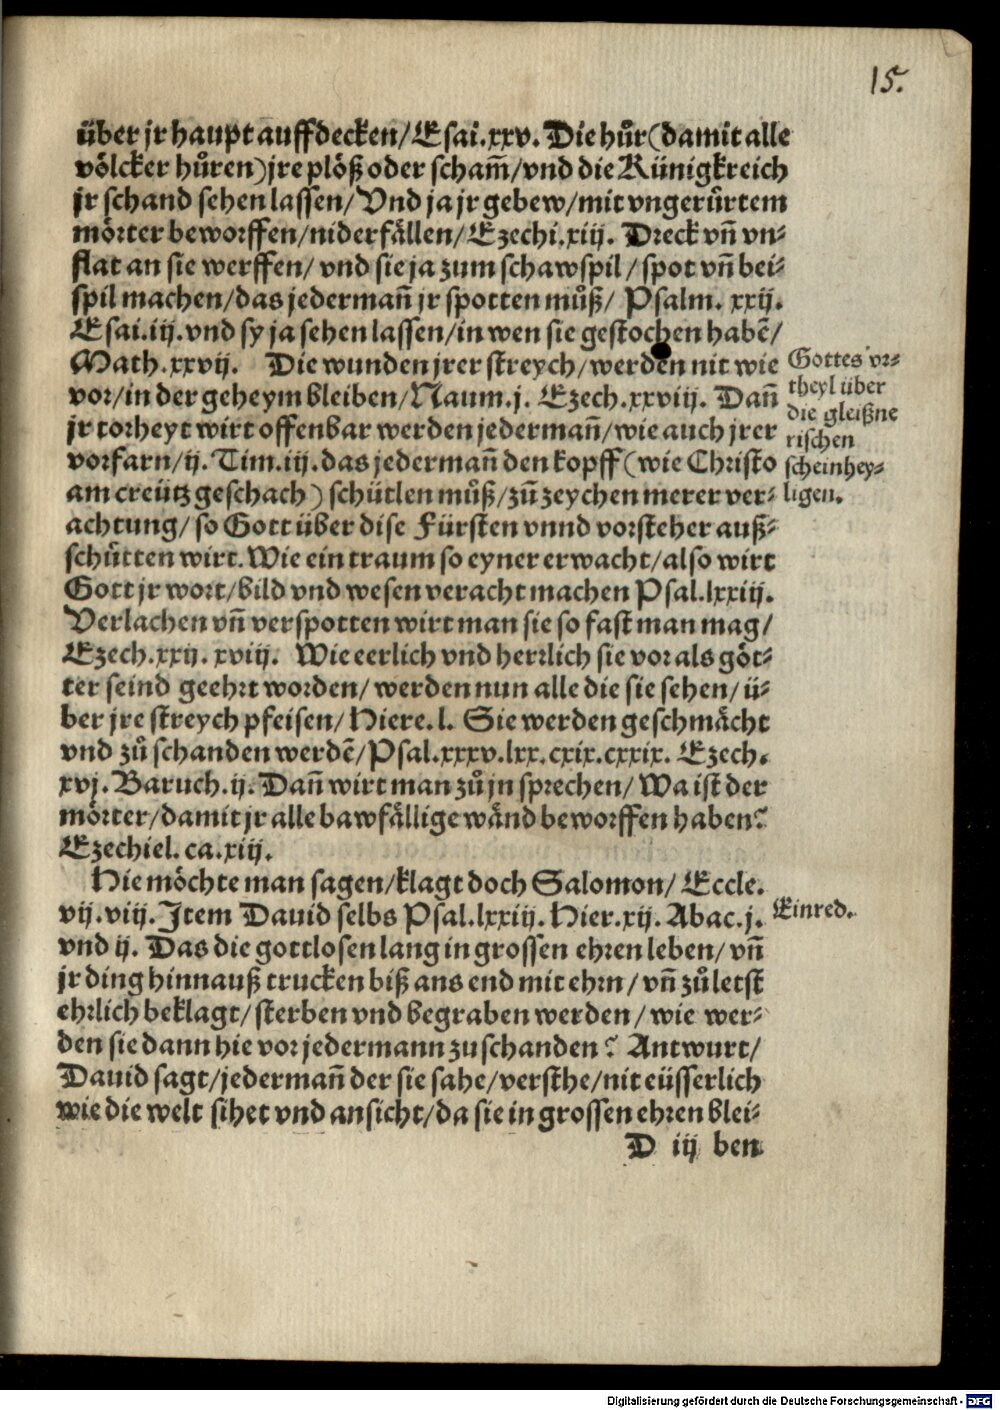 15.
über jr haupt auffdecken/ Esai.xxv. Die hůr (damit alle
völcker hůren) jre plöß oder scham̃/ vnd die Künigkreich
jr schand sehen lassen/ Vnd ja jr gebew/ mit vngerůrtem
mörter beworffen/ niderfällen/ Ezechi.xiij. Dreck vñ vn⸗
flat an sie werffen/ vnd sie ja zum schawspil/ spot vñ bei⸗
spil machen/ das jedermañ jr spotten můß/ Psalm. xxij.
Esai.iij. vnd sy ja sehen lassen/ in wen sie gestochen habẽ/
Math.xxvij. Die wunden jrer streych/ werden nit wie
vor/ in der geheym bleiben/ Naum.j. Ezech.xxviij. Dañ
jr torheyt wirt offenbar werden jedermañ/ wie auch jrer
vorfarn/ ij. Tim.iij. das jedermañ den kopff (wie Christo
am creütz geschach) schütlen můß/ zů zeychen merer ver⸗
achtung/ so Gott über dise Fürsten vnnd vorsteher auß⸗
schütten wirt. Wie ein traum so eyner erwacht/ also wirt
Gott jr wort/ bild vnd wesen veracht machen Psal.lxxiij.
Verlachen vñ verspotten wirt man sie so fast man mag/
Ezech.xxij. xviij. Wie eerlich vnd herrlich sie vor als göt⸗
ter seind geehrt worden/ werden nun alle die sie sehen/ ü⸗
ber jre streych pfeisen/ Hiere. l. Sie werden geschmächt
vnd zů schanden werdẽ/ Psal.xxxv.lxx.cxix.cxxix. Ezech.
xvj. Baruch.ij. Dañ wirt man zů jn sprechen/ Wa ist der
mörter/ damit jr alle bawfällige wänd beworffen haben?
Ezechiel. ca.xiij.
Hie möchte man sagen/ klagt doch Salomon/ Eccle.
vij.viij. Item Dauid selbs Psal.lxxiij. Hier.xij. Abac.j.
vnd ij. Das die gottlosen lang in grossen ehren leben/ vñ
jr ding hinnauß trucken biß ans end mit ehrn/ vñ zůletst
ehrlich beklagt/ sterben vnd begraben werden/ wie wer⸗
den sie dann hie vor jedermann zu schanden? Antwurt/
Dauid sagt/ jedermañ der sie sahe/ versthe/ nit eüsserlich
wie die welt sihet vnd ansicht/ da sie in grossen ehren blei⸗
D iij ben
Gottes vr⸗
theyl über
die gleißne
rischen
scheinhey⸗
ligen.
Einred.
Digitalisierung gefördert durch die Deutsche Forschungsgemeinschaft - DFG